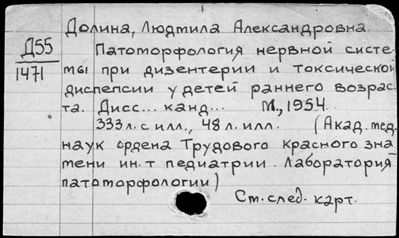 Долина, Людмила Александровна.
Д55
1471
Патоморфология нервной систе-
мы при дизентерии и токсической
диспепсии у детей раннего возрас-
та. Дисс... канд... М., 1954.
333 л. с илл., 48 л. илл. (Акад. мед.
наук ордена Трудового красного зна
мени ин-т педиатрии. Лаборатория
патоморфологии)
Ст. след. карт.